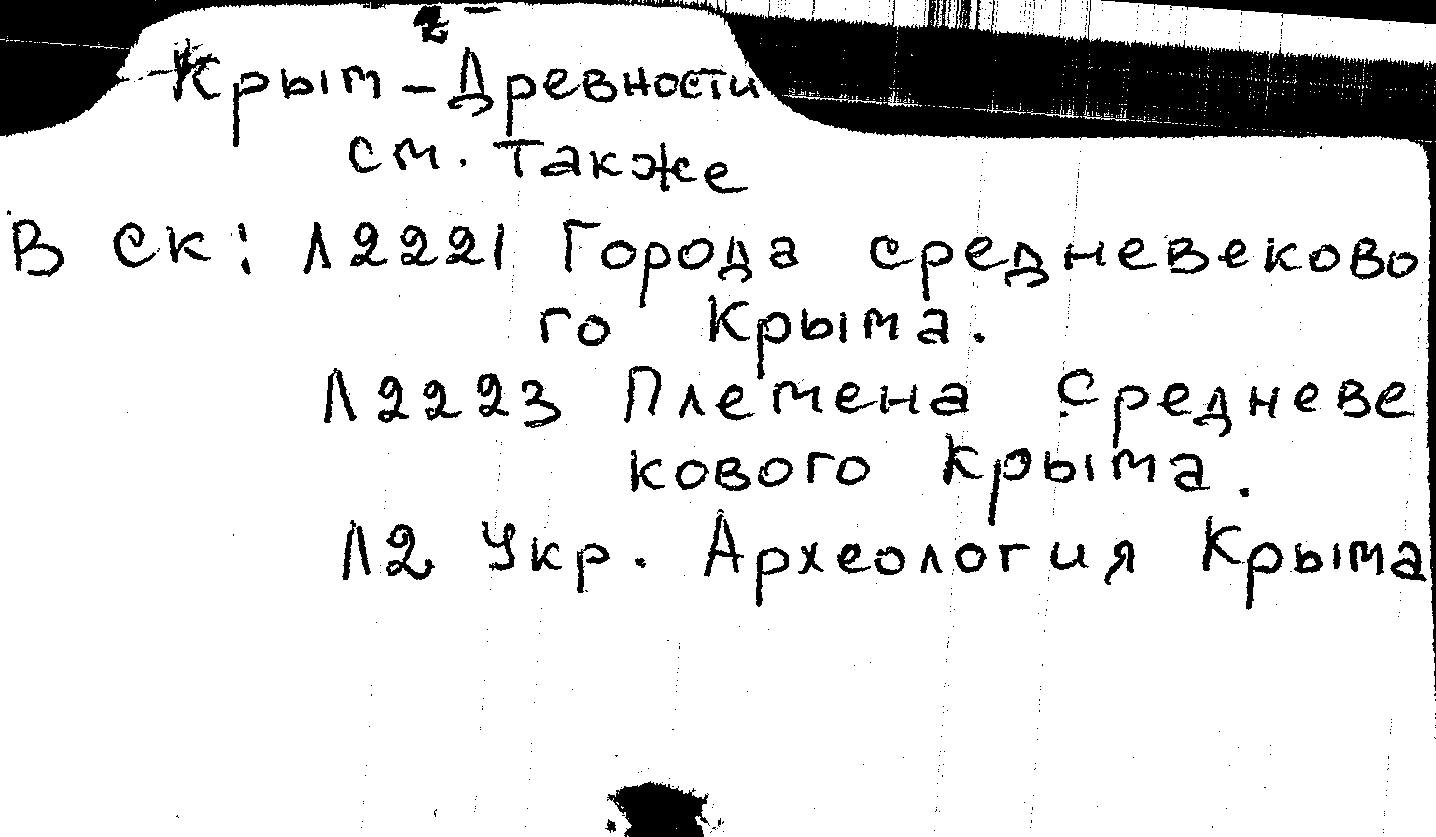 Крым – Древности
см. также
В СК: Л2221 Города средневеково
го Крыма.
Л2223 Племена средневе
кового Крыма.
Л2 Укр. Археология Крыма